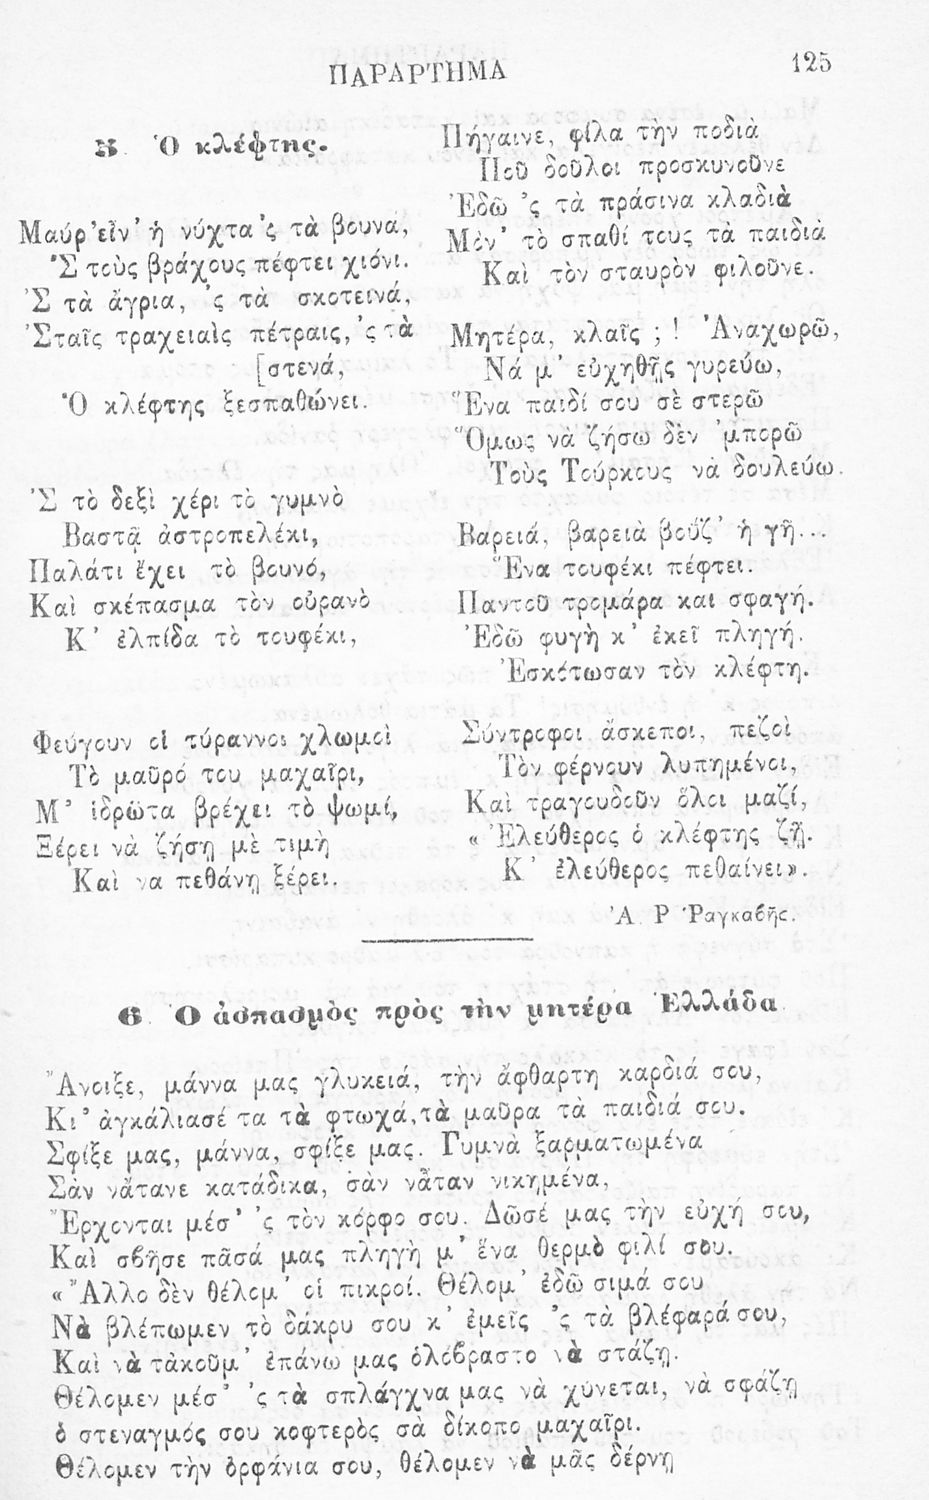 ΠΑΡΑΡΤΗΜΑ
125
5 Ὁ κλέφτης.
Μαύρ' εἶν' ἡ νύχτα 'ς τὰ βουνά,
Ἐ τοὺς βράχους πέφτει χιόνι.
Ἐ τὰ ἄγρια, 'ς τὰ σκοτεινά,
Ἐταῖς τραχειαὶς πέτραις, 'ς τὰ
[στενά,
Ὁ κλέφτης ξεσπαθώνει.
Ἐ τὸ δεξὶ χέρι τὸ γυμνὸ
Βαστᾷ ἀστροπελέκι,
Παλάτι ἔχει τὸ βουνό,
Καὶ σκέπασμα τὸν οὐρανὸ
Κ' ἐλπίδα τὸ τουφέκι,
Φεύγουν οἱ τύραννοι χλωμοὶ
Τὸ μαῦρό του μαχαῖρι,
Μ' ἱδρῶτα βρέχει τὸ ψωμί,
Ξέρει νὰ ζήσῃ μὲ τιμὴ
Καὶ να πεθάνῃ ξέρει.
Πήγαινε, φίλα τὴν ποδιὰ
Ποῦ δοῦλοι προσκυνοῦνε
Ἐδῶ 'ς τὰ πράσινα κλαδιὰ
Μόν' τὸ σπαθί τους τὰ παιδιὰ
Καὶ τὸν σταυρὸν φιλοῦνε.
Μητέρα, κλαῖς ; ! Ἀναχωρῶ,
Νά μ' εὐχηθῇς γυρεύω,
Ἕνα παιδί σου σὲ στερῶ
Ὅμως νὰ ζήσω δὲν 'μπορῶ
Τοὺς Τούρκους νὰ δουλεύω.
Βαρειά, βαρειὰ βοΰζ' ἡ γῆ...
Ἕνα τουφέκι πέφτει.
Παντοῦ τρομάρα και σφαγή.
Ἐδῶ φυγὴ κ' ἐκεῖ πληγή.
Ἐσκότωσαν τὸν κλέφτη.
Σύντροφοι ἄσκεποι, πεζοὶ
Τὸν φέρνουν λυπημένοι,
Καὶ τραγουδοῦν ὅλοι μαζί,
« Ἐλεύθερος ὁ κλέφτης ζῇ.
Κ' ἐλεύθερος πεθαίνει».
Ἀ. Ρ Ῥαγκαβῆς.
6. Ο ἀσπασμὸς πρὸς τὴν μητέρα Ἑλλάδα
Ἄνοιξε, μάννα μας γλυκειά, τὴν ἄφθαρτη καρδιά σου,
Κι' ἀγκάλιασέ τα τὰ φτωχά, τὰ μαῦρα τὰ παιδιά σου.
Σφίξε μας, μάννα, σφίξε μας. Γυμνὰ ξαρματωμένα
Σὰν νἄτανε κατάδικα, σὰν νἄταν νικημένα,
Ἔρχονται μέσ' 'ς τὸν κόρφο σου. Δῶσέ μας τὴν εὐχή σου,
Καὶ σβῆσε πᾶσά μας πληγὴ μ' ἕνα θερμὸ φιλί σου.
« Ἄλλο δὲν θέλομ' οἱ πικροί. Θέλομ' ἐδῶ σιμά σου
Νὰ βλέπωμεν τὸ δάκρυ σου κ' ἐμεῖς 'ς τὰ βλέφαρά σου,
Καὶ νὰ τἀκοῦμ' ἐπάνω μας ὁλόβραστο νὰ στάζῃ.
Θέλομεν μέσ' 'ς τὰ σπλάγχνα μας νὰ χύνεται, νὰ σφάζῃ
ὁ στεναγμός σου κοφτερὸς σὰ δίκοπο μαχαῖρι.
Θέλομεν τὴν ὀρφάνια σου, θέλομεν νὰ μᾶς δέρνῃ